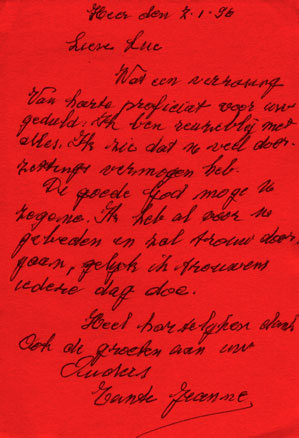 Heer den 7.1.96
Lieve Luc
Wat een verrassing
Van harte proficiat voor uw
geduld. Ik ben reuzeblij met
alles. Ik zie dat u veel door-
zettings vermogen heb.
De goede God moge U
zegene. Ik heb al voor u
gebeden en zal trouw door
gaan, gelijk ik trouwens
iedere dag doe.
Heel hartelijken dank
Ook de groeten aan uw
Ouders
Tante Jeanne